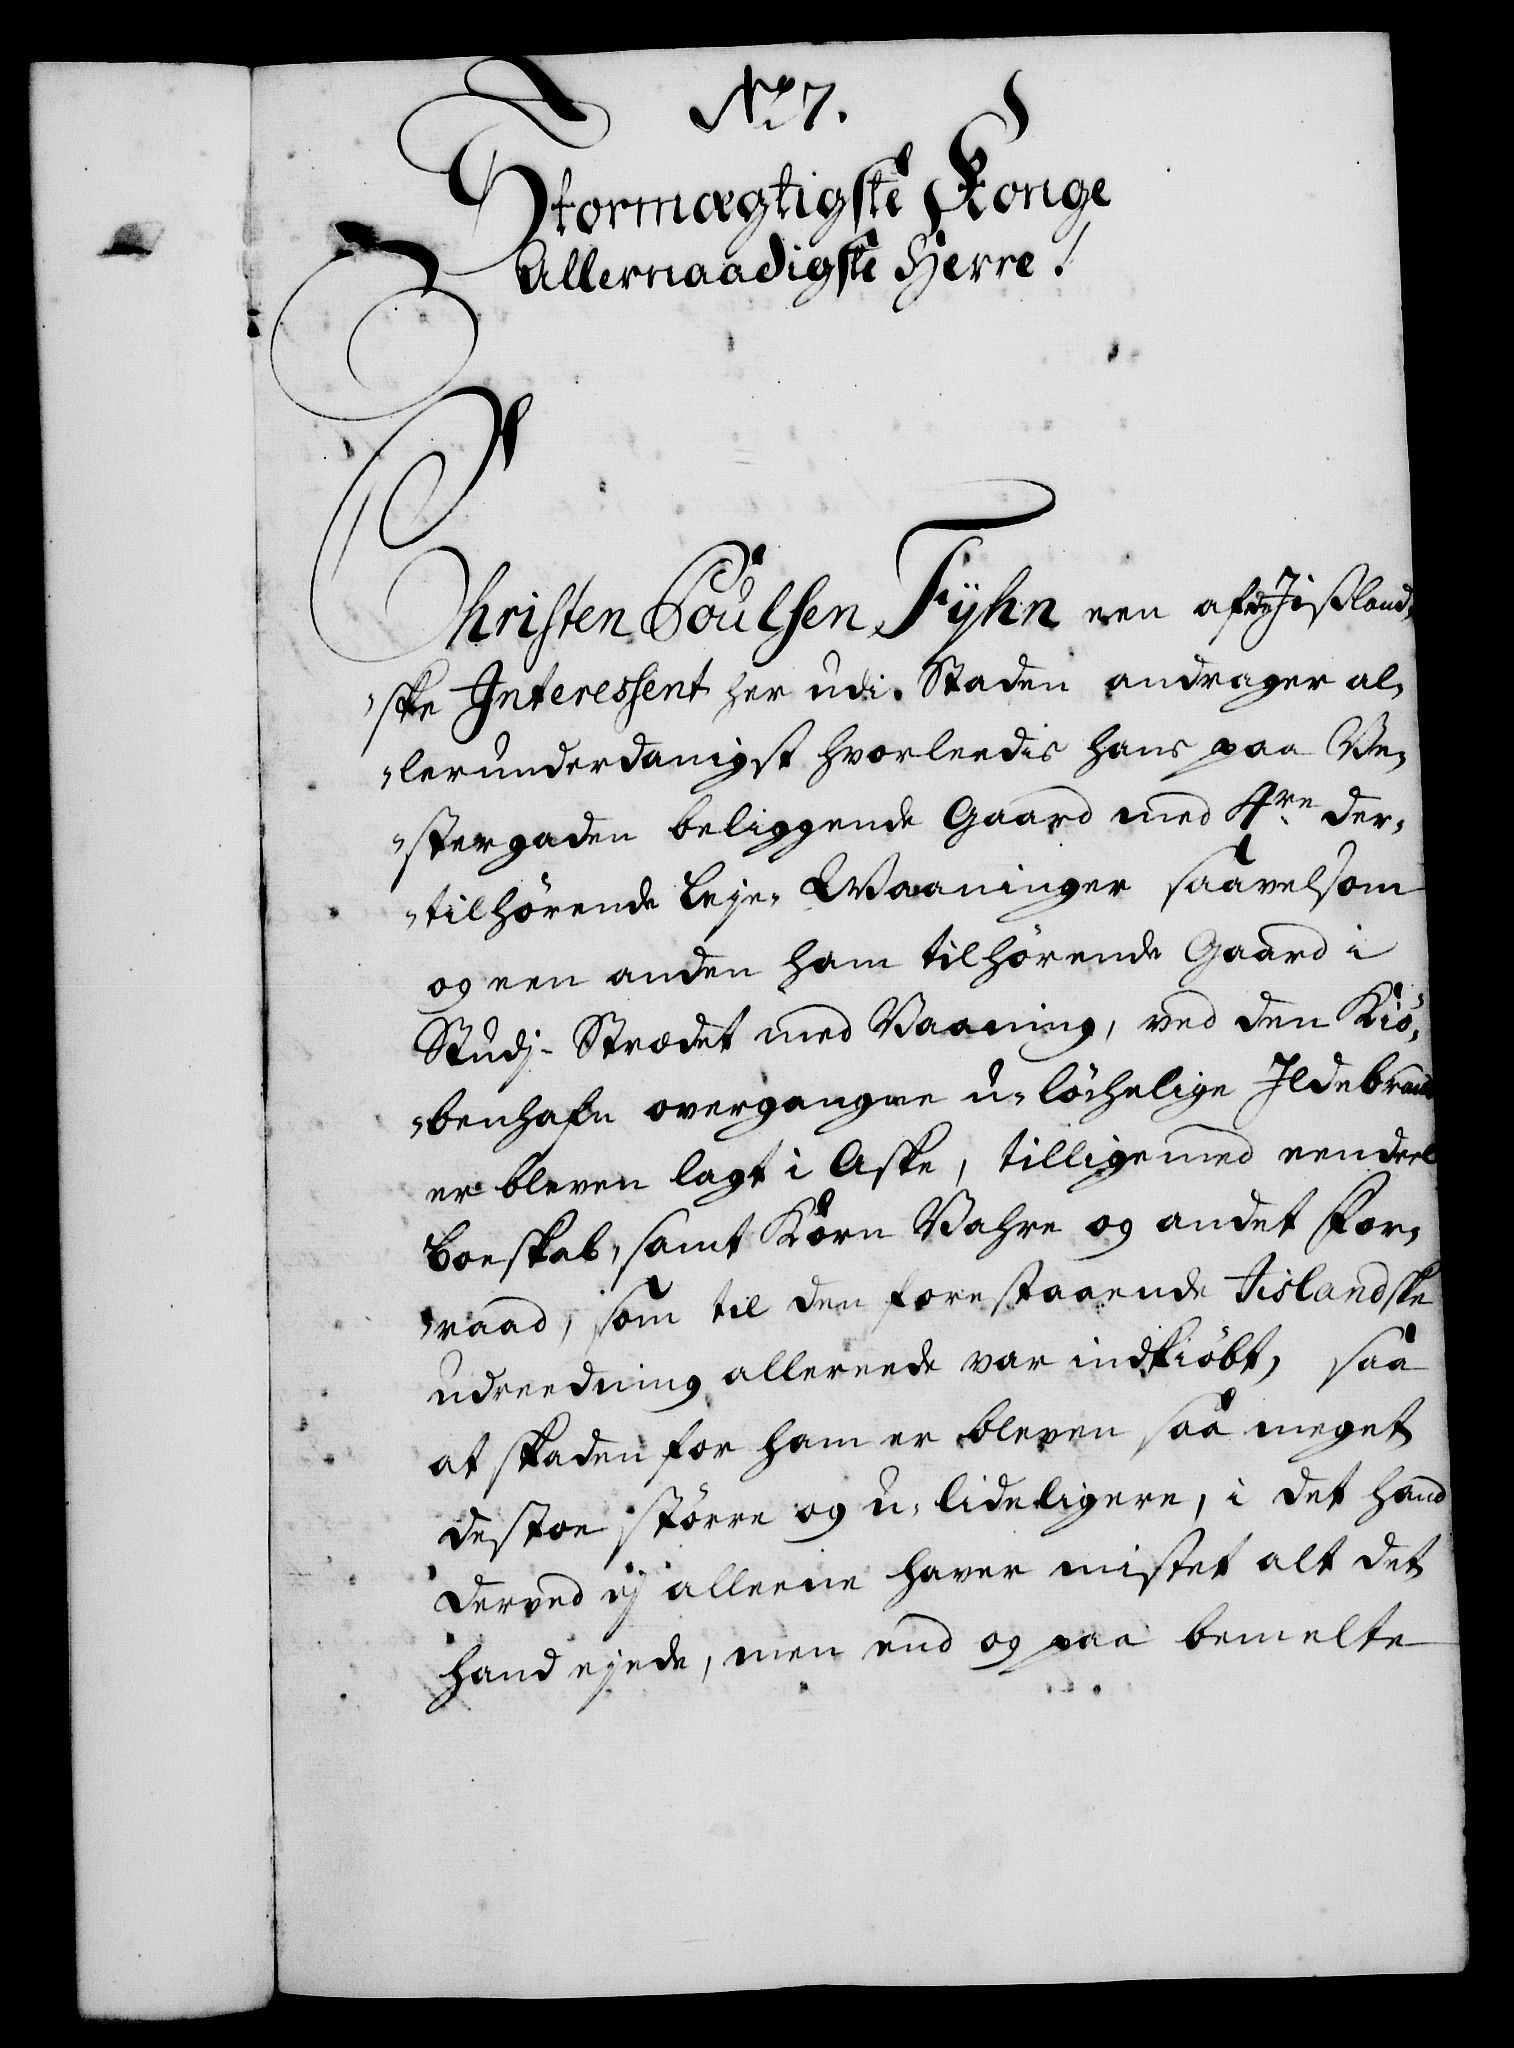 No 7.
Stormægtigste Konge
Allernaadigste Herre!
Christen Poülsen Fyhn een af de Jisland,
„ske Interessent her udi Staden andrager al,
„lerunderdanigst hvorleedis hans paa Ve,
„stergaden beliggende Gaard med 4re der,
„tilhørende Leje, Waaninger saavelsom
og een anden ham tilhørende Gaard i
Studj-Strædet med Vaaning, ved den Kiö,
„benhafn overgangne u-löchelige Jldebrand
er bleven lagt i Aske, tilligemed eendeel
boeskab, samt Körn Vahre og andet For,
„raad, som til den forestaaende Jislandske
udreedning allereede var indkiöbt, saa
at skaden for ham er bleven saa meget
destoe större og u-lideligere, i det hand
derved ej alleene haver mistet alt det
hand ejede, men end og paa bemelte